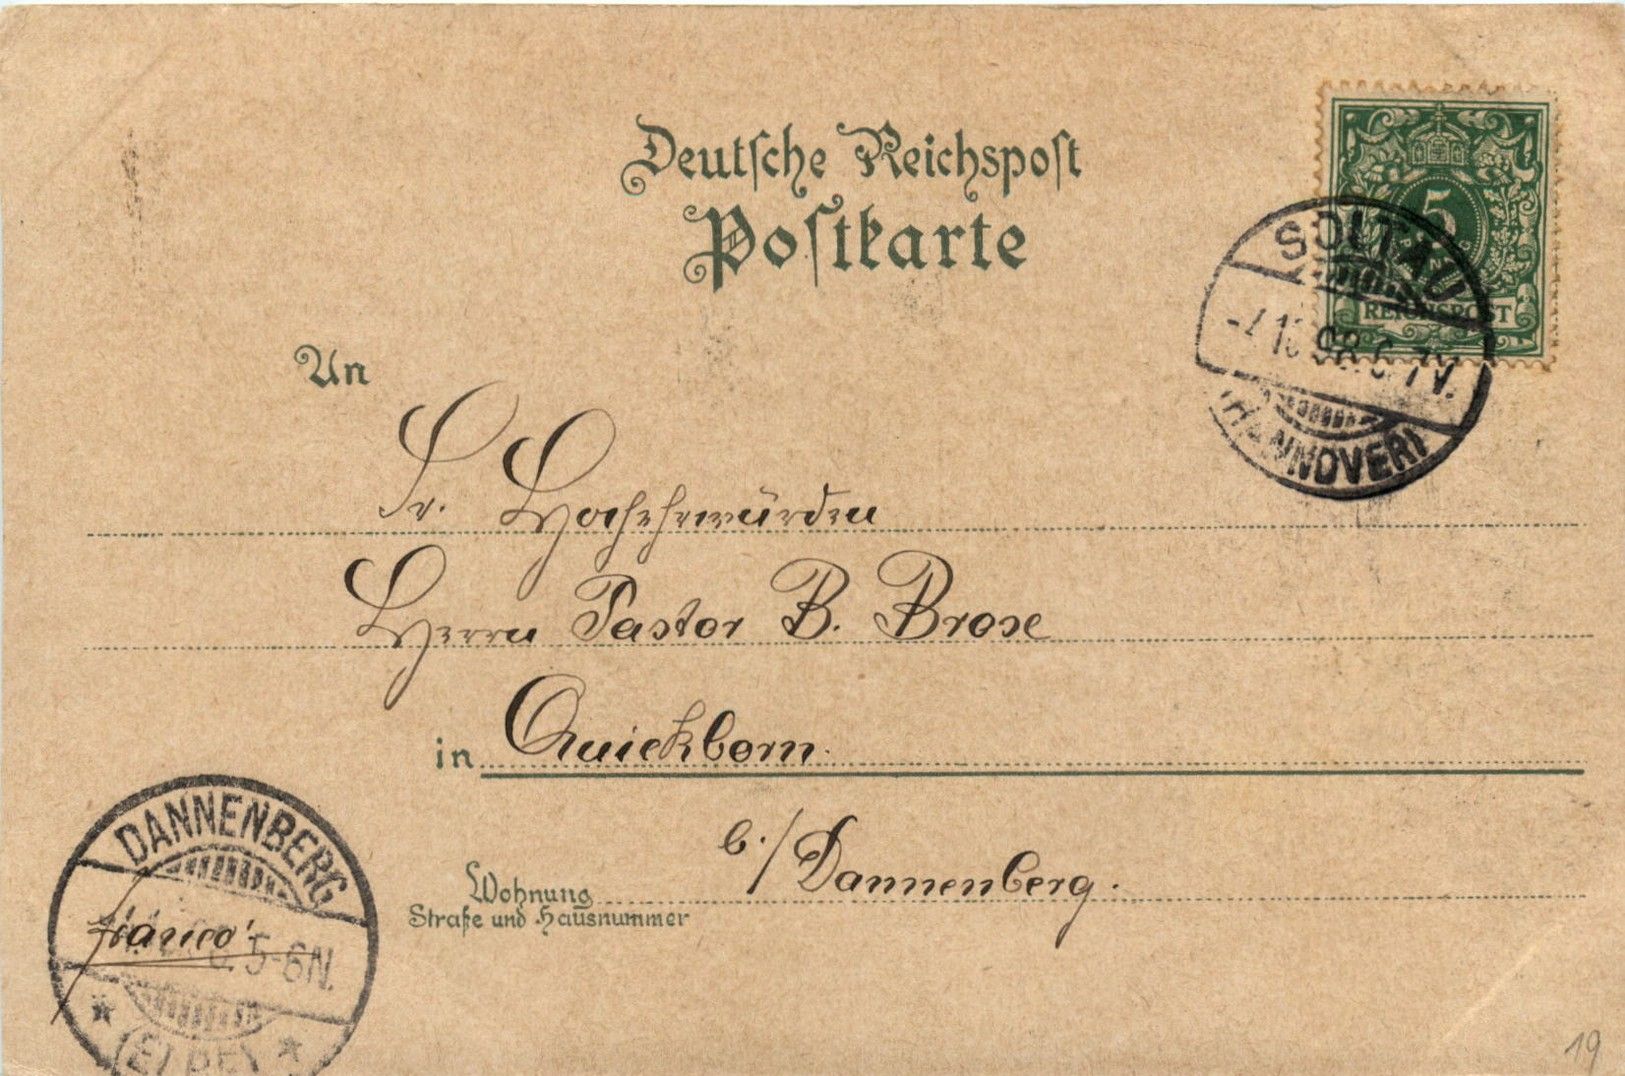 Deutsche Reichspost
Postkarte
5
REICHSPOST
SOLTAU
98
(HANNOVER)
An
Sr. Hochehrwürden
Herrn Pastor B. Brose
in Quickborn
b./Dannenberg.
Wohnung
Straße und Hausnummer
DANNENBERG
franco
5-6N.
(ELBE)
19